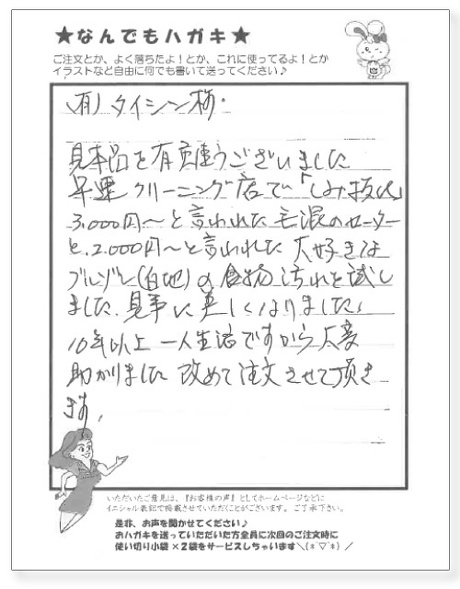 ★なんでもハガキ★
ご注文とか、よく落ちたよ！とか、これに使ってるよ！とか
イラストなど自由に何でも書いて送ってください♪
(有)タイシン様.
見本品を有難うございました
早速クリーニング店で「しみ抜代」
3,000円〜と言われた毛混のセーター
と、2,000円〜と言われた大好きな
ブルゾン(白地)の食物汚れを試し
ました、見事に美しくなりました、
10年以上一人生活ですから大変
助かりました 改めて注文させて頂き
ます、
いただいたご意見は、『お客様の声』としてホームページなどに
イニシャル表記で掲載させていただくことがございます。ご了承下さい。
是非、お声を聞かせてください♪
おハガキを送っていただいた方全員に次回のご注文時に
使い切り小袋×2袋をサービスしちゃいます＼(*´▽`*)／